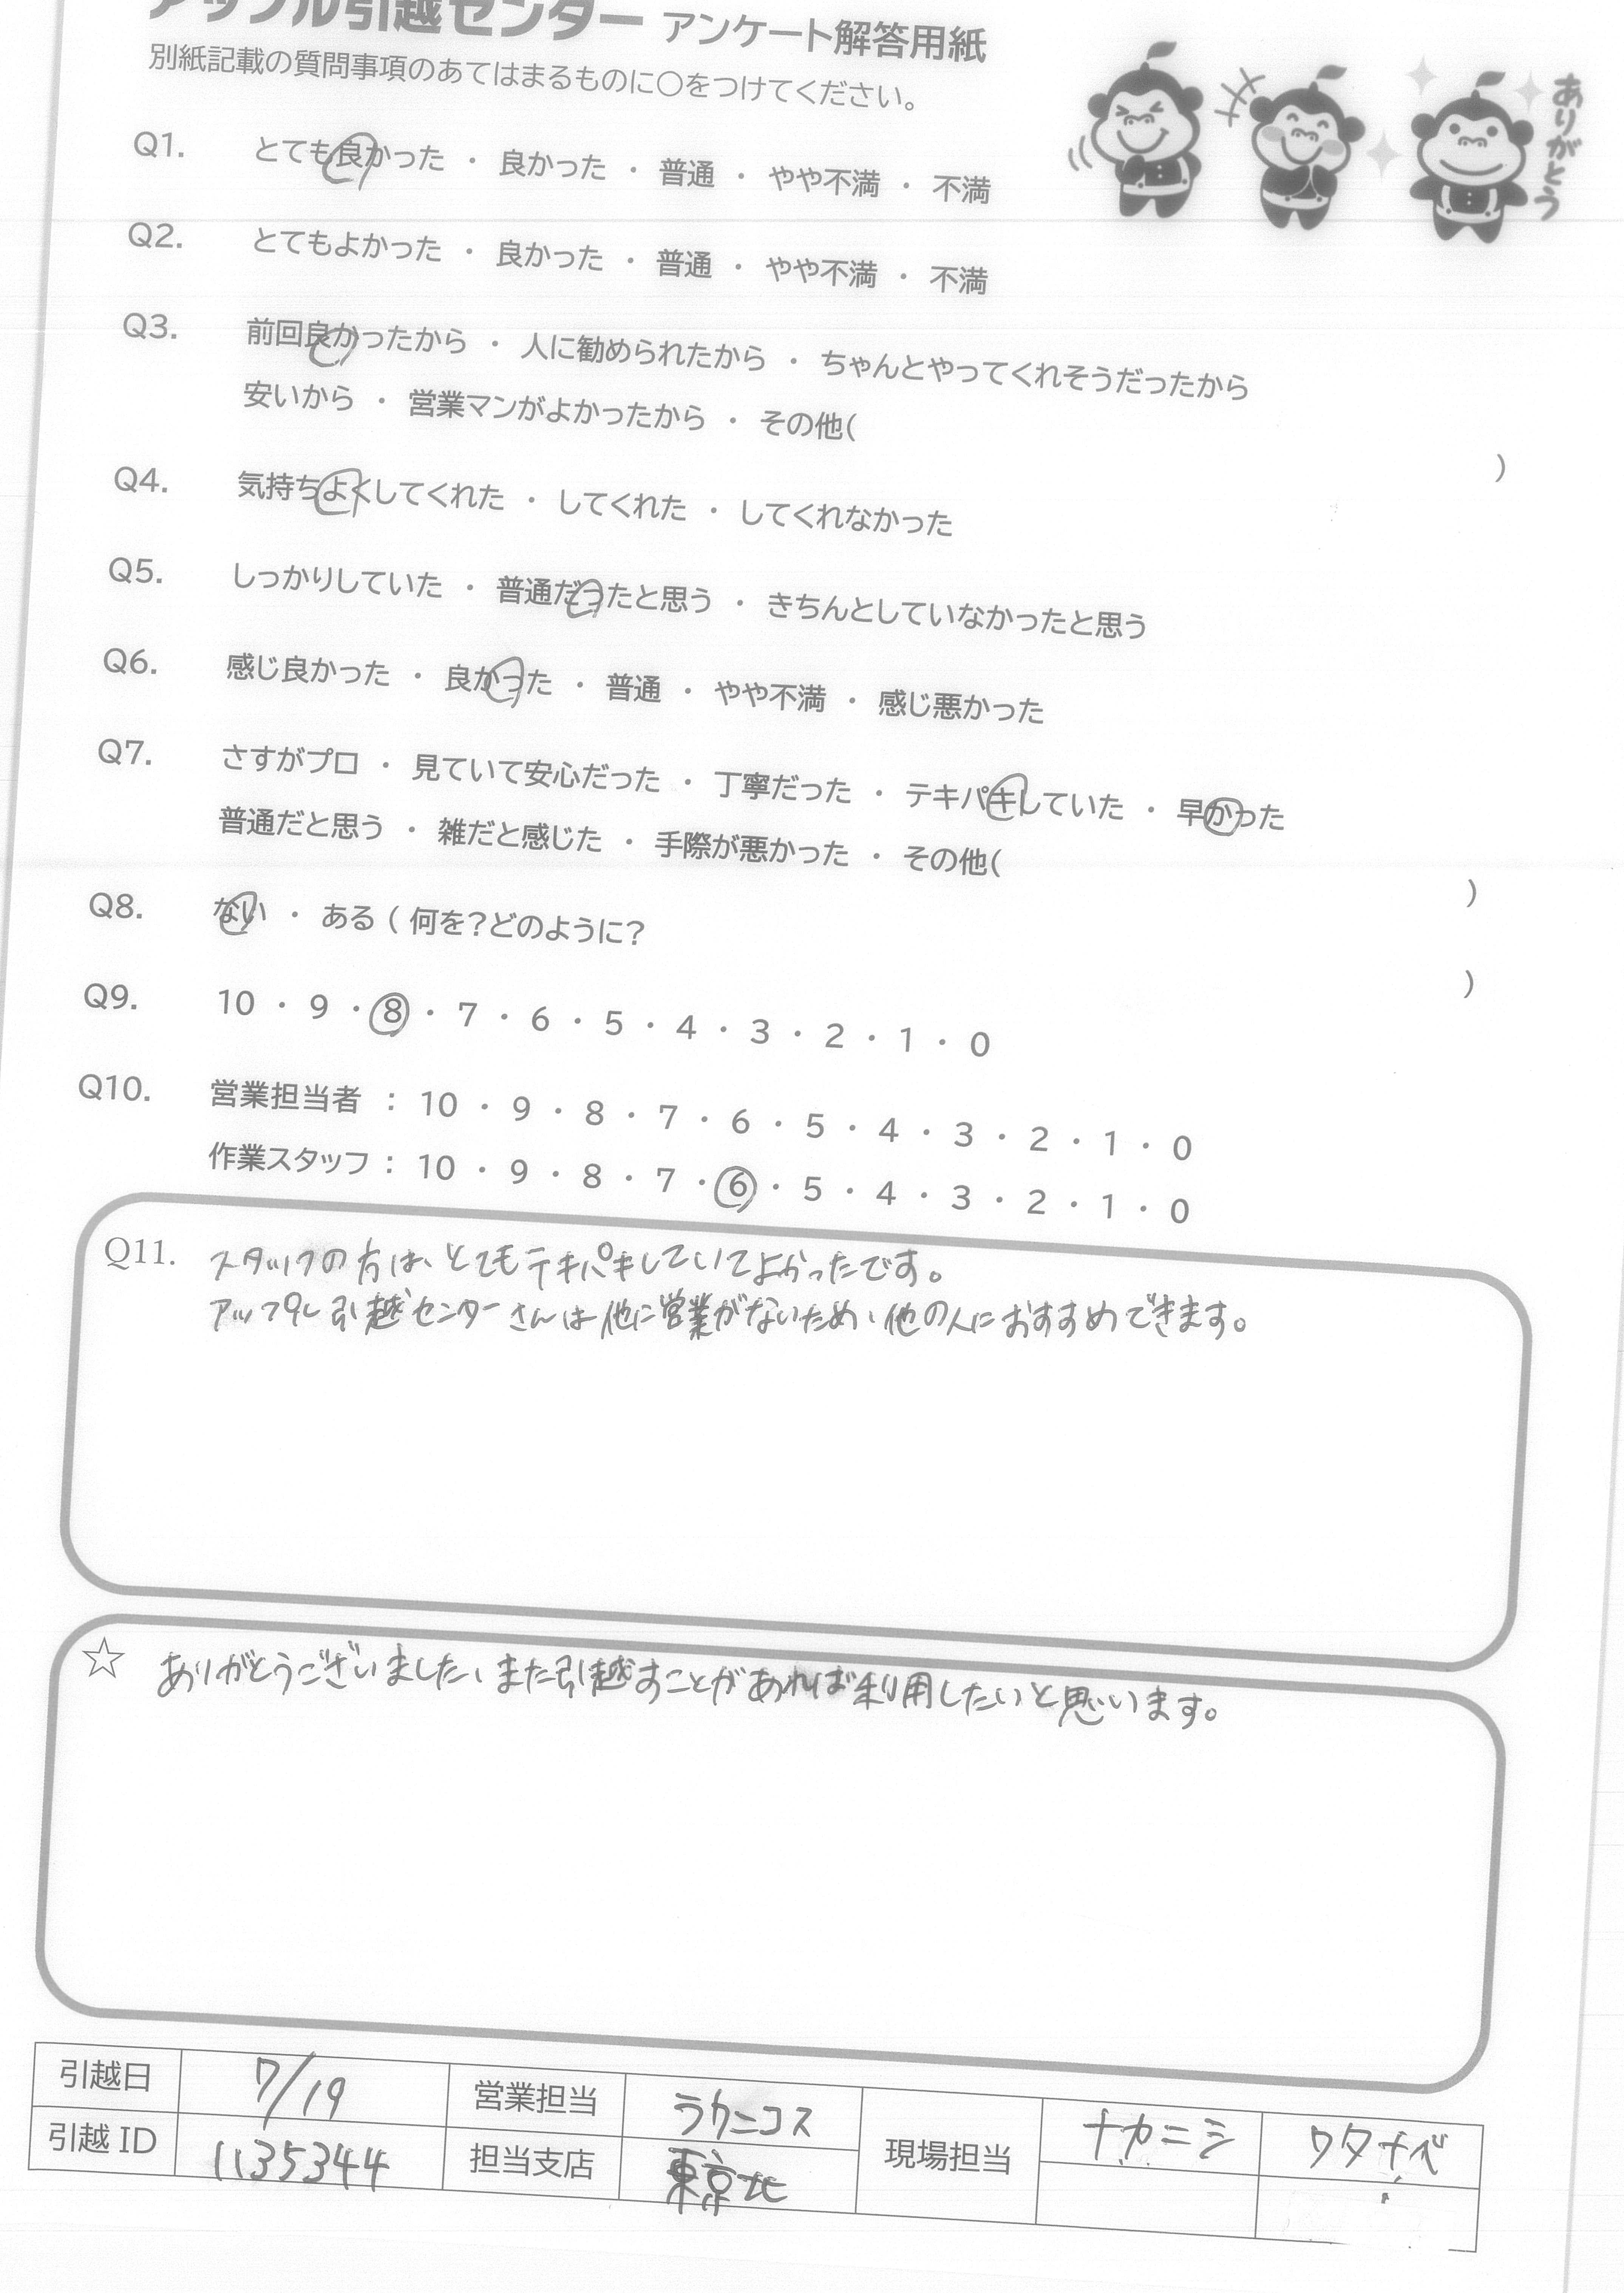 アップル引越センター アンケート解答用紙
別紙記載の質問事項のあてはまるものに○をつけてください。
ありがとう
Q1. とても良かった ・ 良かった ・ 普通 ・ やや不満 ・ 不満
Q2. とてもよかった ・ 良かった ・ 普通 ・ やや不満 ・ 不満
Q3. 前回良かったから ・ 人に勧められたから ・ ちゃんとやってくれそうだったから
安いから ・ 営業マンがよかったから ・ その他( )
Q4. 気持ちよくしてくれた ・ してくれた ・ してくれなかった
Q5. しっかりしていた ・ 普通だったと思う ・ きちんとしていなかったと思う
Q6. 感じ良かった ・ 良かった ・ 普通 ・ やや不満 ・ 感じ悪かった
Q7. さすがプロ ・ 見ていて安心だった ・ 丁寧だった ・ テキパキしていた ・ 早かった
普通だと思う ・ 雑だと感じた ・ 手際が悪かった ・ その他( )
Q8. ない ・ ある ( 何を?どのように? )
Q9. 10 ・ 9 ・ 8 ・ 7 ・ 6 ・ 5 ・ 4 ・ 3 ・ 2 ・ 1 ・ 0
Q10. 営業担当者 : 10 ・ 9 ・ 8 ・ 7 ・ 6 ・ 5 ・ 4 ・ 3 ・ 2 ・ 1 ・ 0
作業スタッフ : 10 ・ 9 ・ 8 ・ 7 ・ 6 ・ 5 ・ 4 ・ 3 ・ 2 ・ 1 ・ 0
Q11. スタッフの方は、とてもテキパキしていてよかったです。
アップル引越センターさんは他に営業がないため、他の人におすすめできます。
☆ ありがとうございました、また引越すことがあれば利用したいと思います。
引越日 7/19 営業担当 ラクニコス 現場担当 ナカニシ ワタナベ
引越ID 1135344 担当支店 東京北